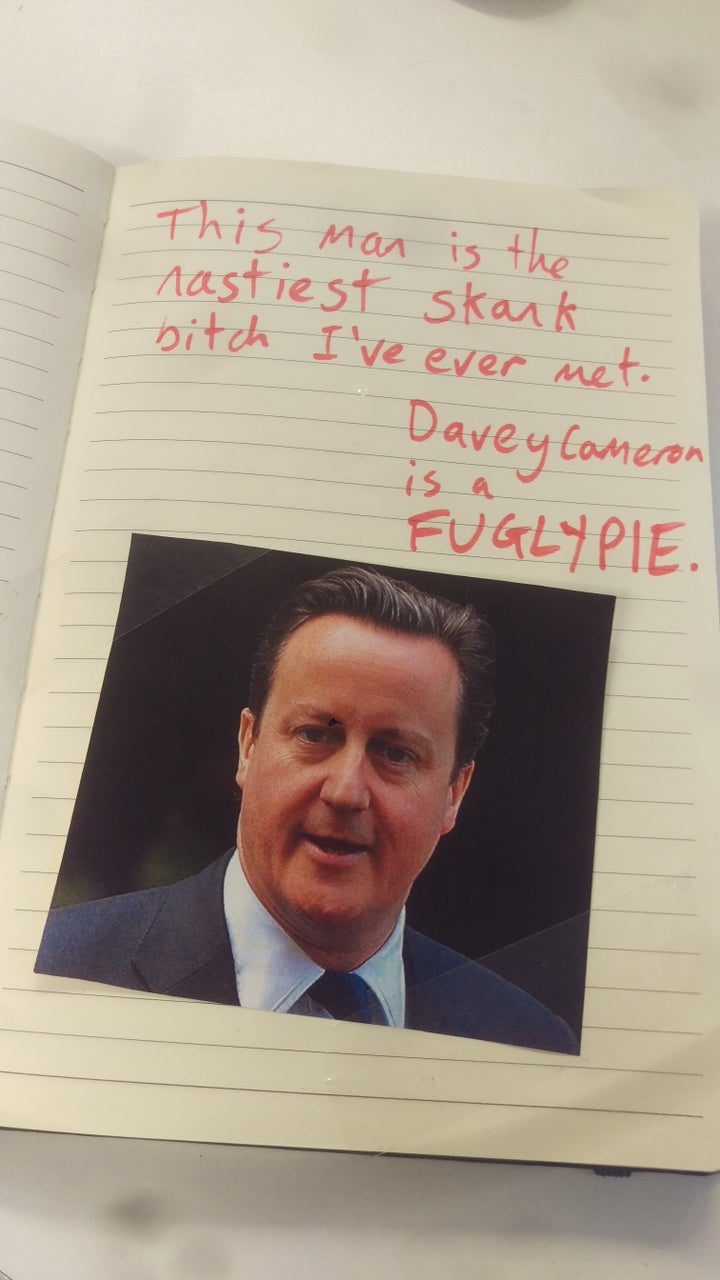 This man is the
nastiest skank
bitch I've ever met.
Davey Cameron
is a
FUGLY PIE.